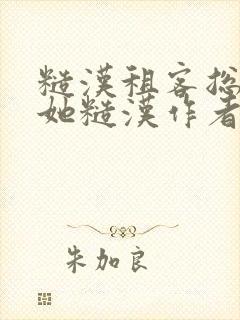 糙漢租客總
她糙漢作者
朱加良